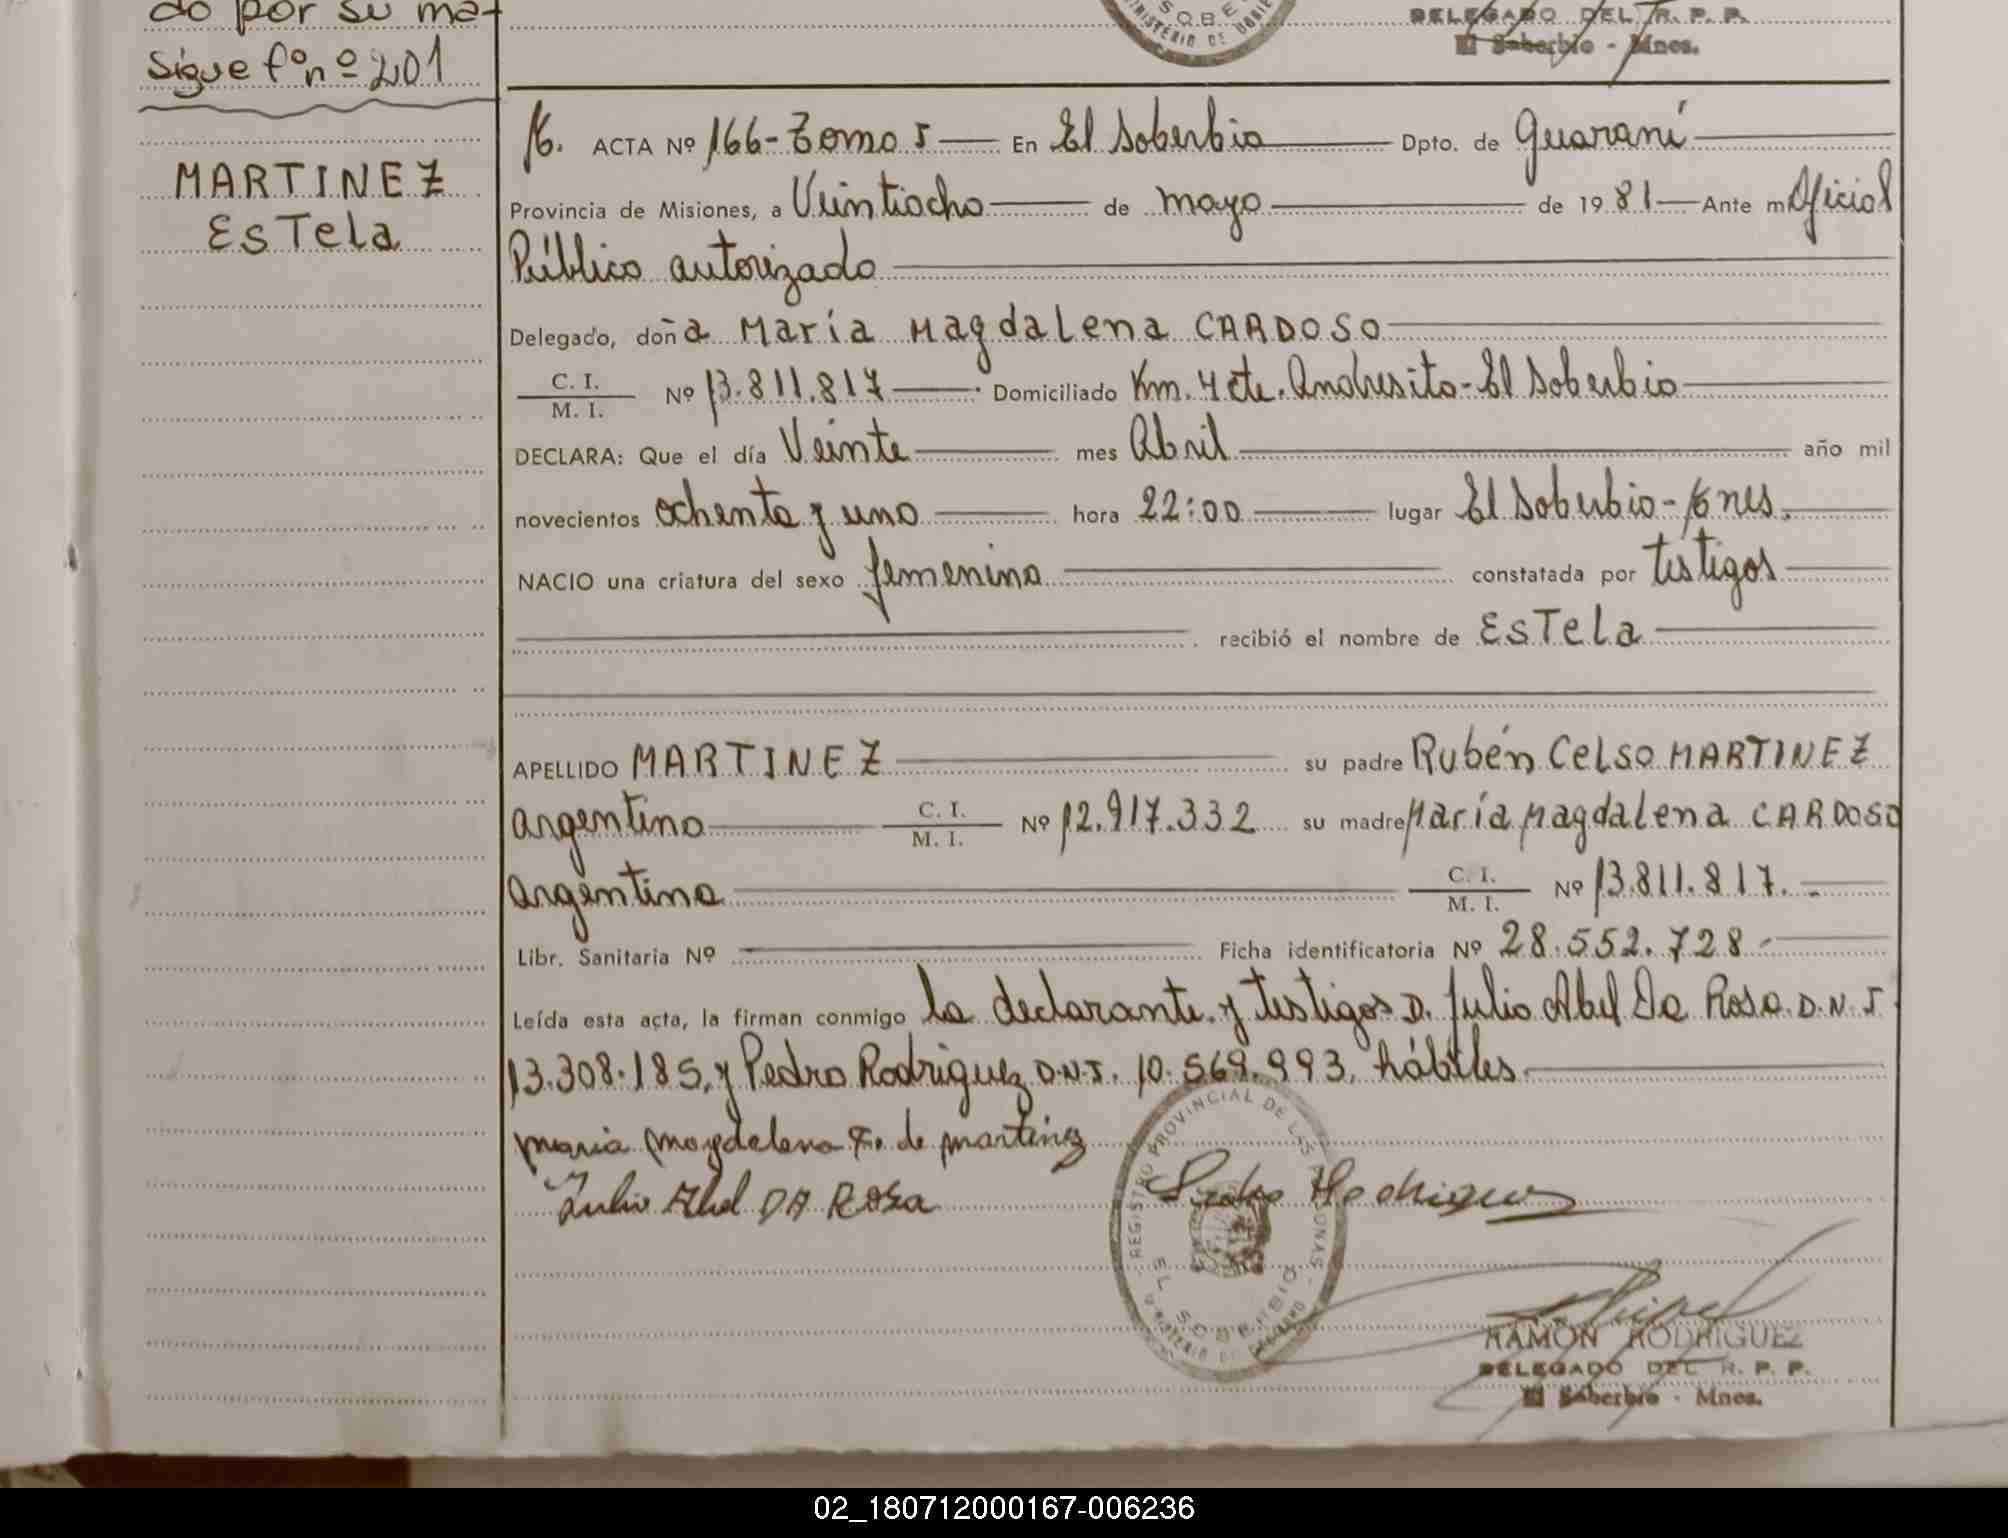 do por su ma-
Sigue fº nº 201
DELEGADO DEL R. P. P.
El Soberbio - Mnes.
MARTINEZ
EsTela
ACTA Nº 166-Tomo I En El Soberbio Dpto. de Guaraní
Provincia de Misiones, a Veintiocho de mayo de 1981 Ante mí Oficial
Público autorizado
Delegado, doña María Magdalena CARDOSO
C. I.
M. I. Nº 13.811.817 Domiciliado Km. 4 cte. Andresito-El Soberbio
DECLARA: Que el día Veinte mes Abril año mil
novecientos ochenta y uno hora 22:00 lugar El Soberbio-Mnes.
NACIO una criatura del sexo femenino constatada por testigos
recibió el nombre de EsTela
APELLIDO MARTINEZ su padre Rubén Celso MARTINEZ
argentino C. I.
M. I. Nº 12.917.332 su madre María Magdalena CARDOSO
argentina C. I.
M. I. Nº 13.811.817.
Libr. Sanitaria Nº Ficha identificatoria Nº 28.552.728
Leída esta acta, la firman conmigo la declarante y testigos D. Julio Abel Da Rosa D.N.I.
13.308.185, y Pedro Rodriguez D.N.I. 10.569.993, hábiles
maria magdalena F. de martinez
Julio Abel DA ROSA
Pedro Rodriguez
REGISTRO PROVINCIAL DE LAS PERSONAS
EL SOBERBIO
MINISTERIO DE GOBIERNO
RAMON RODRIGUEZ
DELEGADO DEL R. P. P.
El Soberbio - Mnes.
02_180712000167-006236